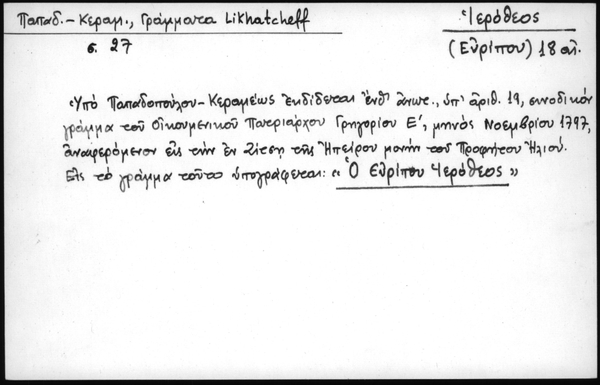 Παπαδ.-Κεραμ., Γράμματα Likhatcheff
σ. 27
Ἱερόθεος
(Εὐρίπου) 18 αἰ.
Ὑπὸ Παπαδοπούλου-Κεραμέως ἐκδίδεται ἔνθ' ἄνωτ., ὑπ' ἀριθ. 19, συνοδικὸν
γράμμα τοῦ Οἰκουμενικοῦ Πατριάρχου Γρηγορίου Ε', μηνὸς Νοεμβρίου 1797,
ἀναφερόμενον εἰς τὴν ἐν Ζίτσῃ τῆς Ἠπείρου μονὴν τοῦ Προφήτου Ἠλιού.
Εἰς τὸ γράμμα τοῦτο ὑπογράφεται: «Ὁ Εὐρίπου Ἱερόθεος»